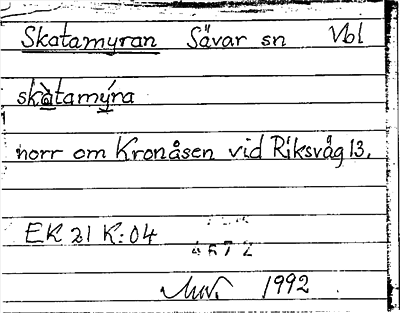 Skatamyran Sävar sn Vbl
skàtamýra
norr om Kronåsen vid Riksväg 13.
EK 21 K:04
1992